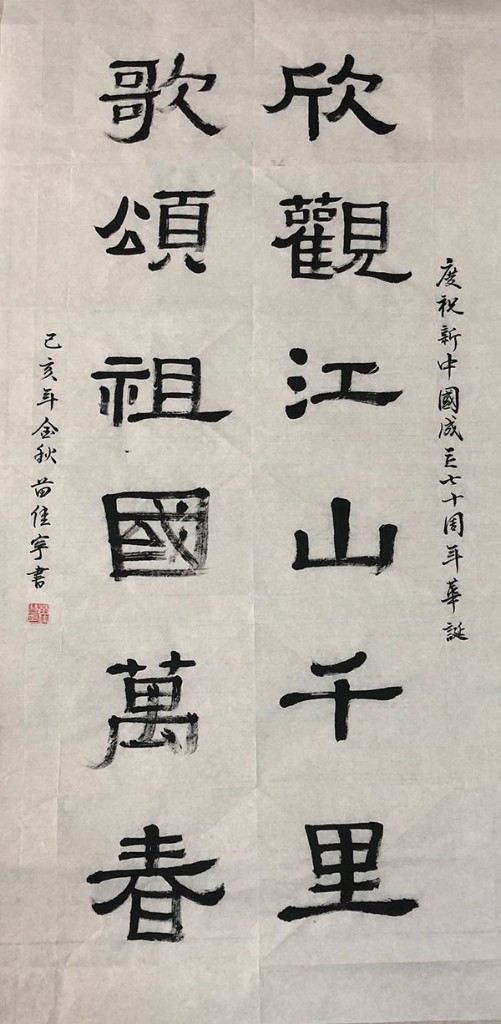 慶祝新中國成立七十周年華誕
欣觀江山千里
歌頌祖國萬春
己亥年金秋苗佳寧書